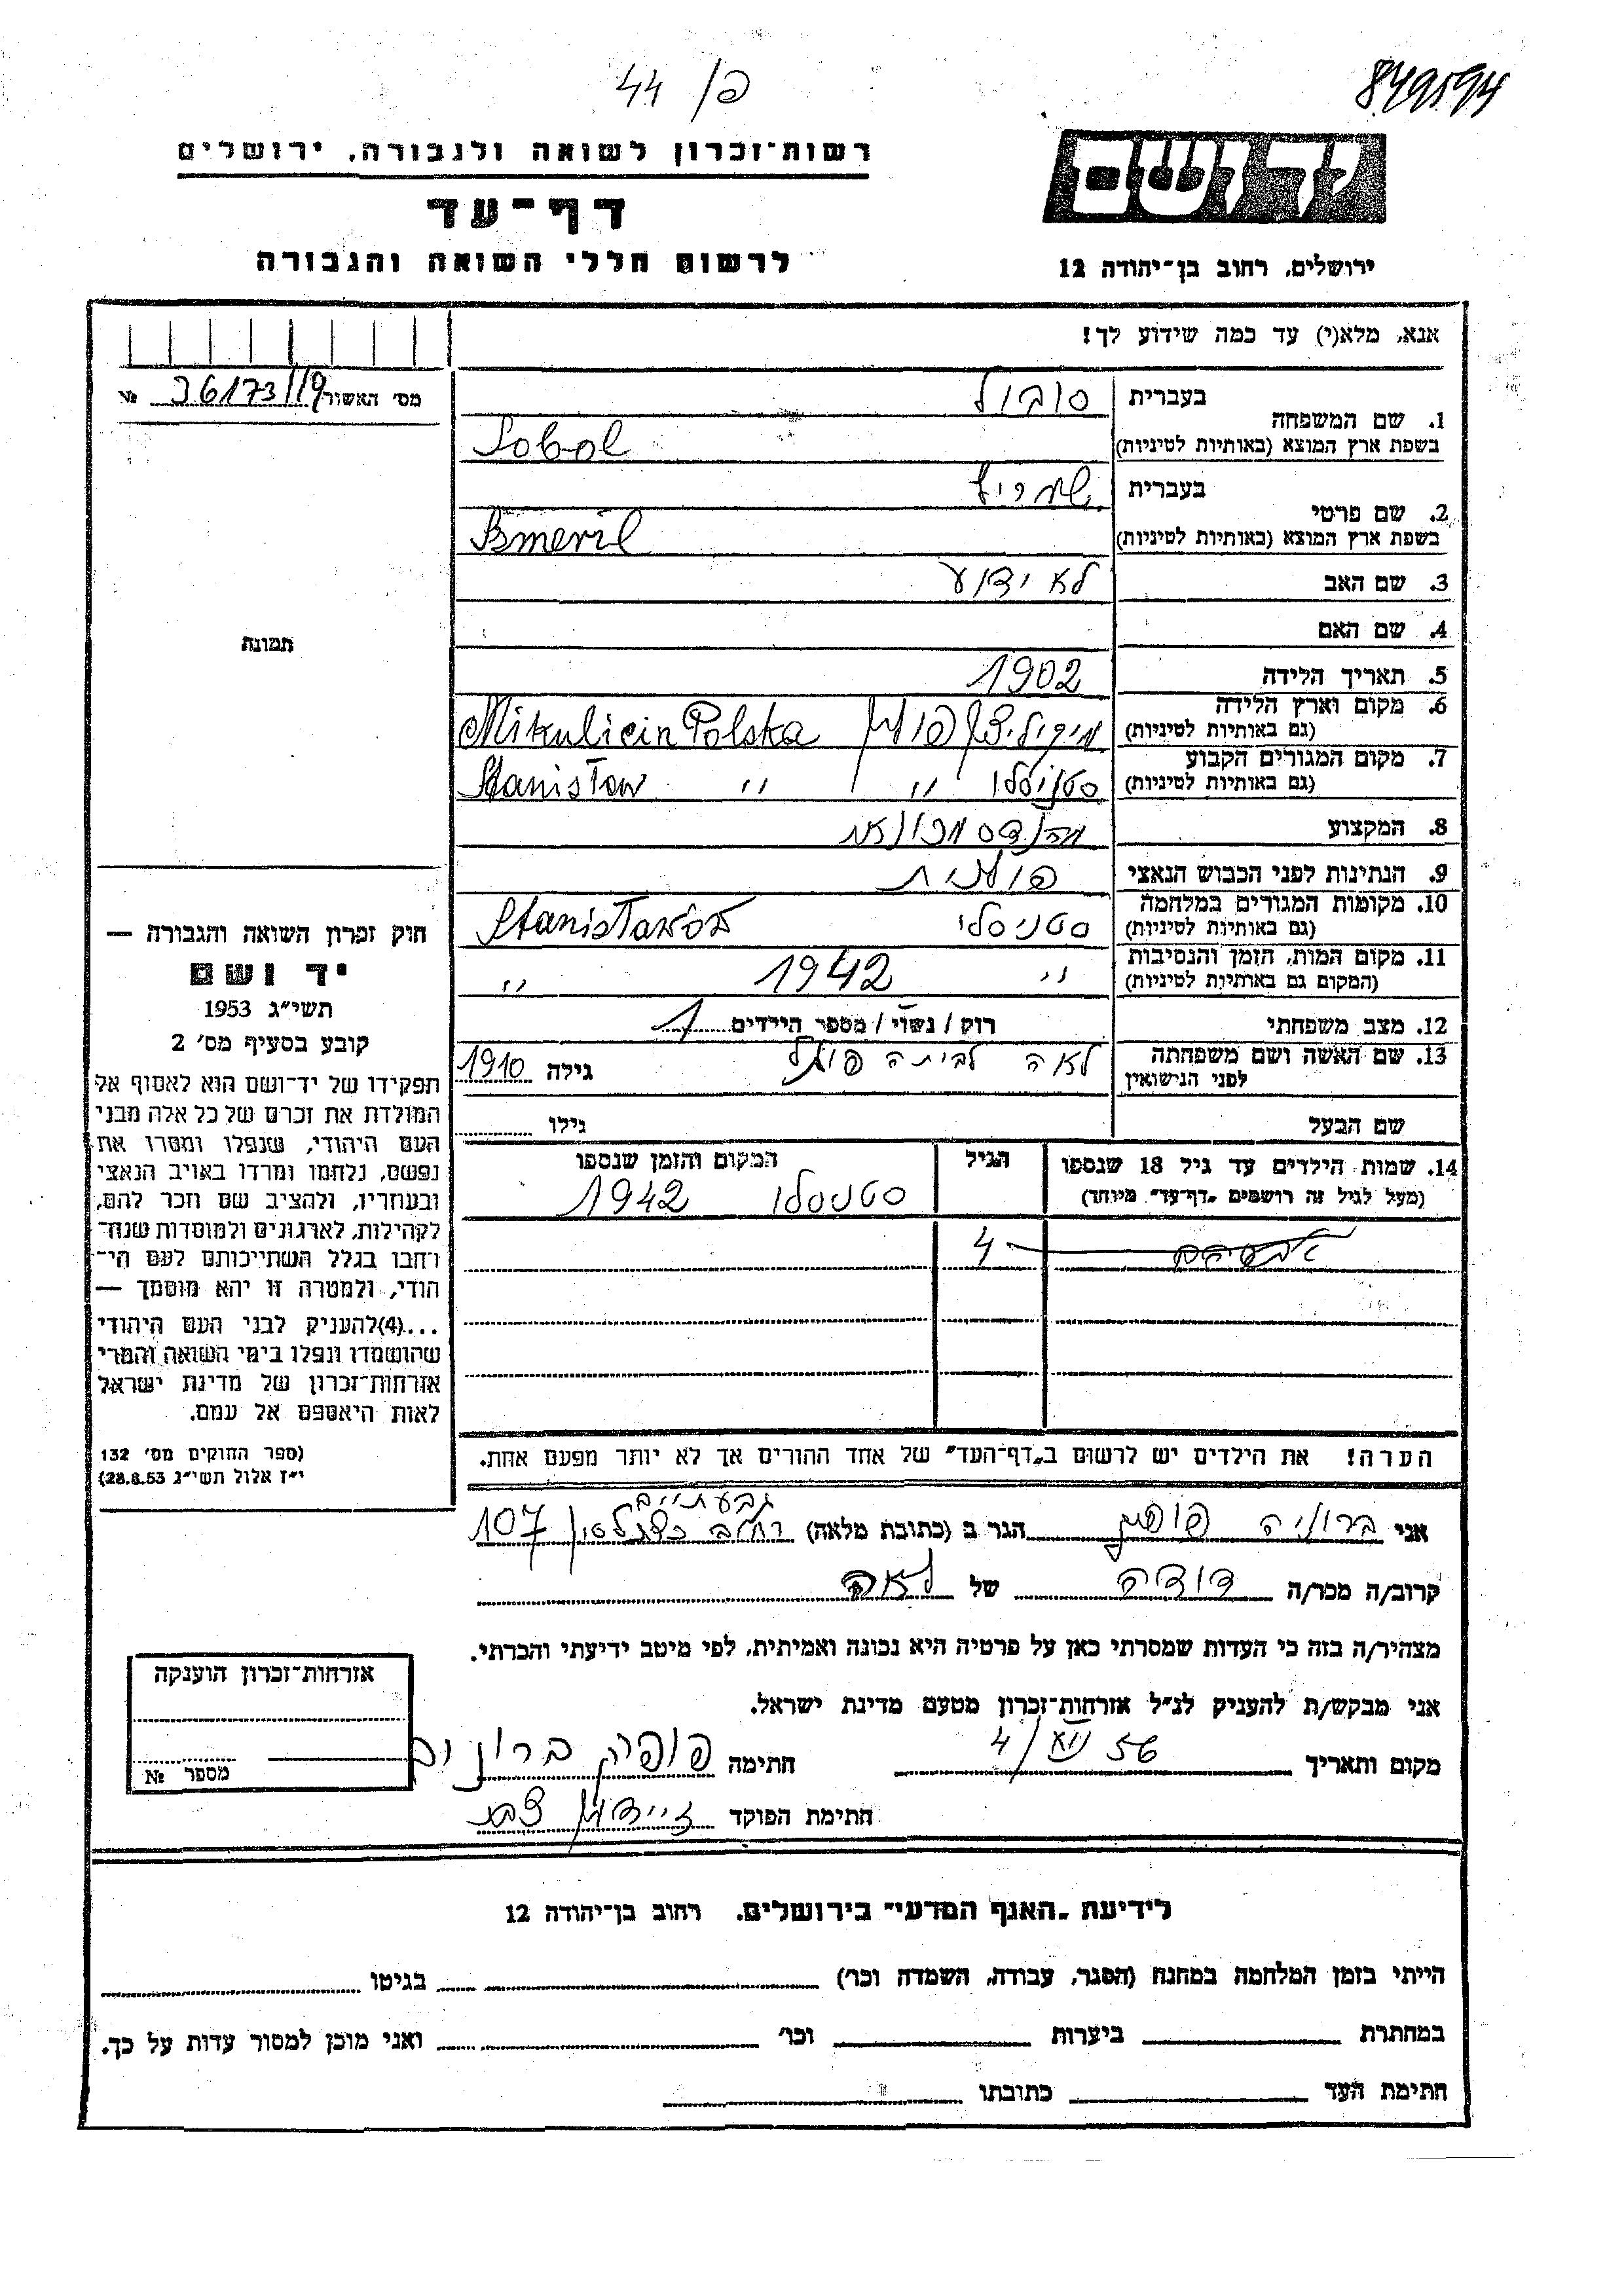 פ/44
849594
רשות־זכרון לשואה ולגבורה, ירושלים
יד ושם
דף־עד
לרשום חללי השואה והגבורה
ירושלים, רחוב בן־יהודה 12
אנא, מלא(י) עד כמה שידוע לך!
מס' האשור 36173/19 №
תמונה
בעברית סובול
1. שם המשפחה
בשפת ארץ המוצא (באותיות לטיניות) Sobol
בעברית שמריל
2. שם פרטי
בשפת ארץ המוצא (באותיות לטיניות)
3. שם האב לא ידוע
4. שם האם
5. תאריך הלידה 1902
6. מקום וארץ הלידה
(גם באותיות לטיניות) Mikuliein Polska
7. מקום המגורים הקבוע
(גם באותיות לטיניות) סטניסלו " Stanisław "
8. המקצוע
9. הנתינות לפני הכבוש הנאצי פולנית
10. מקומות המגורים במלחמה
(גם באותיות לטיניות) סטניסלו
11. מקום המות, הזמן והנסיבות
(המקום גם באותיות לטיניות) " 1942 "
12. מצב משפחתי רוק / נשוי / מספר הילדים 1
13. שם האשה ושם משפחתה לאה לבית גילה 1910
לפני הנישואין
שם הבעל גילו
14. שמות הילדים עד גיל 18 שנספו הגיל המקום והזמן שנספו
(מעל לגיל זה רושמים „דף־עד" מיוחד) סטניסלו 1942
4
הערה! את הילדים יש לרשום ב„דף־העד" של אחד ההורים אך לא יותר מפעם אחת.
חוק זכרון השואה והגבורה —
יד ושם
תשי"ג 1953
קובע בסעיף מס' 2
תפקידו של יד־ושם הוא לאסוף אל
המולדת את זכרם של כל אלה מבני
העם היהודי, שנפלו ומסרו את
נפשם, נלחמו ומרדו באויב הנאצי
ובעוזריו, ולהציב שם וזכר להם,
לקהילות, לארגונים ולמוסדות שנח־
רבו בגלל השתייכותם לעם הי־
הודי, ולמטרה זו יהא מוסמך —
...(4)להעניק לבני העם היהודי
שהושמדו ונפלו בימי השואה והמרי
אזרחות־זכרון של מדינת ישראל
לאות היאספם אל עמם.
(ספר החוקים מס' 132
י"ז אלול תשי"ג 28.8.53)
גבעתיים
אני ברוניה הגר ב (כתובת מלאה) רחוב כצנלסון 107
קרוב/ה מכר/ה דודה של לאה
מצהיר/ה בזה כי העדות שמסרתי כאן על פרטיה היא נכונה ואמיתית, לפי מיטב ידיעתי והכרתי.
אני מבקש/ת להעניק לנ"ל אזרחות־זכרון מטעם מדינת ישראל.
מקום ותאריך חתימה
חתימת הפוקד
אזרחות־זכרון הוענקה
מספר №
לידיעת „האגף המדעי" בירושלים, רחוב בן־יהודה 12
הייתי בזמן המלחמה במחנה (הסגר, עבודה, השמדה וכו') בגיטו
במחתרת ביערות וכו' ואני מוכן למסור עדות על כך.
חתימת העד כתובתו